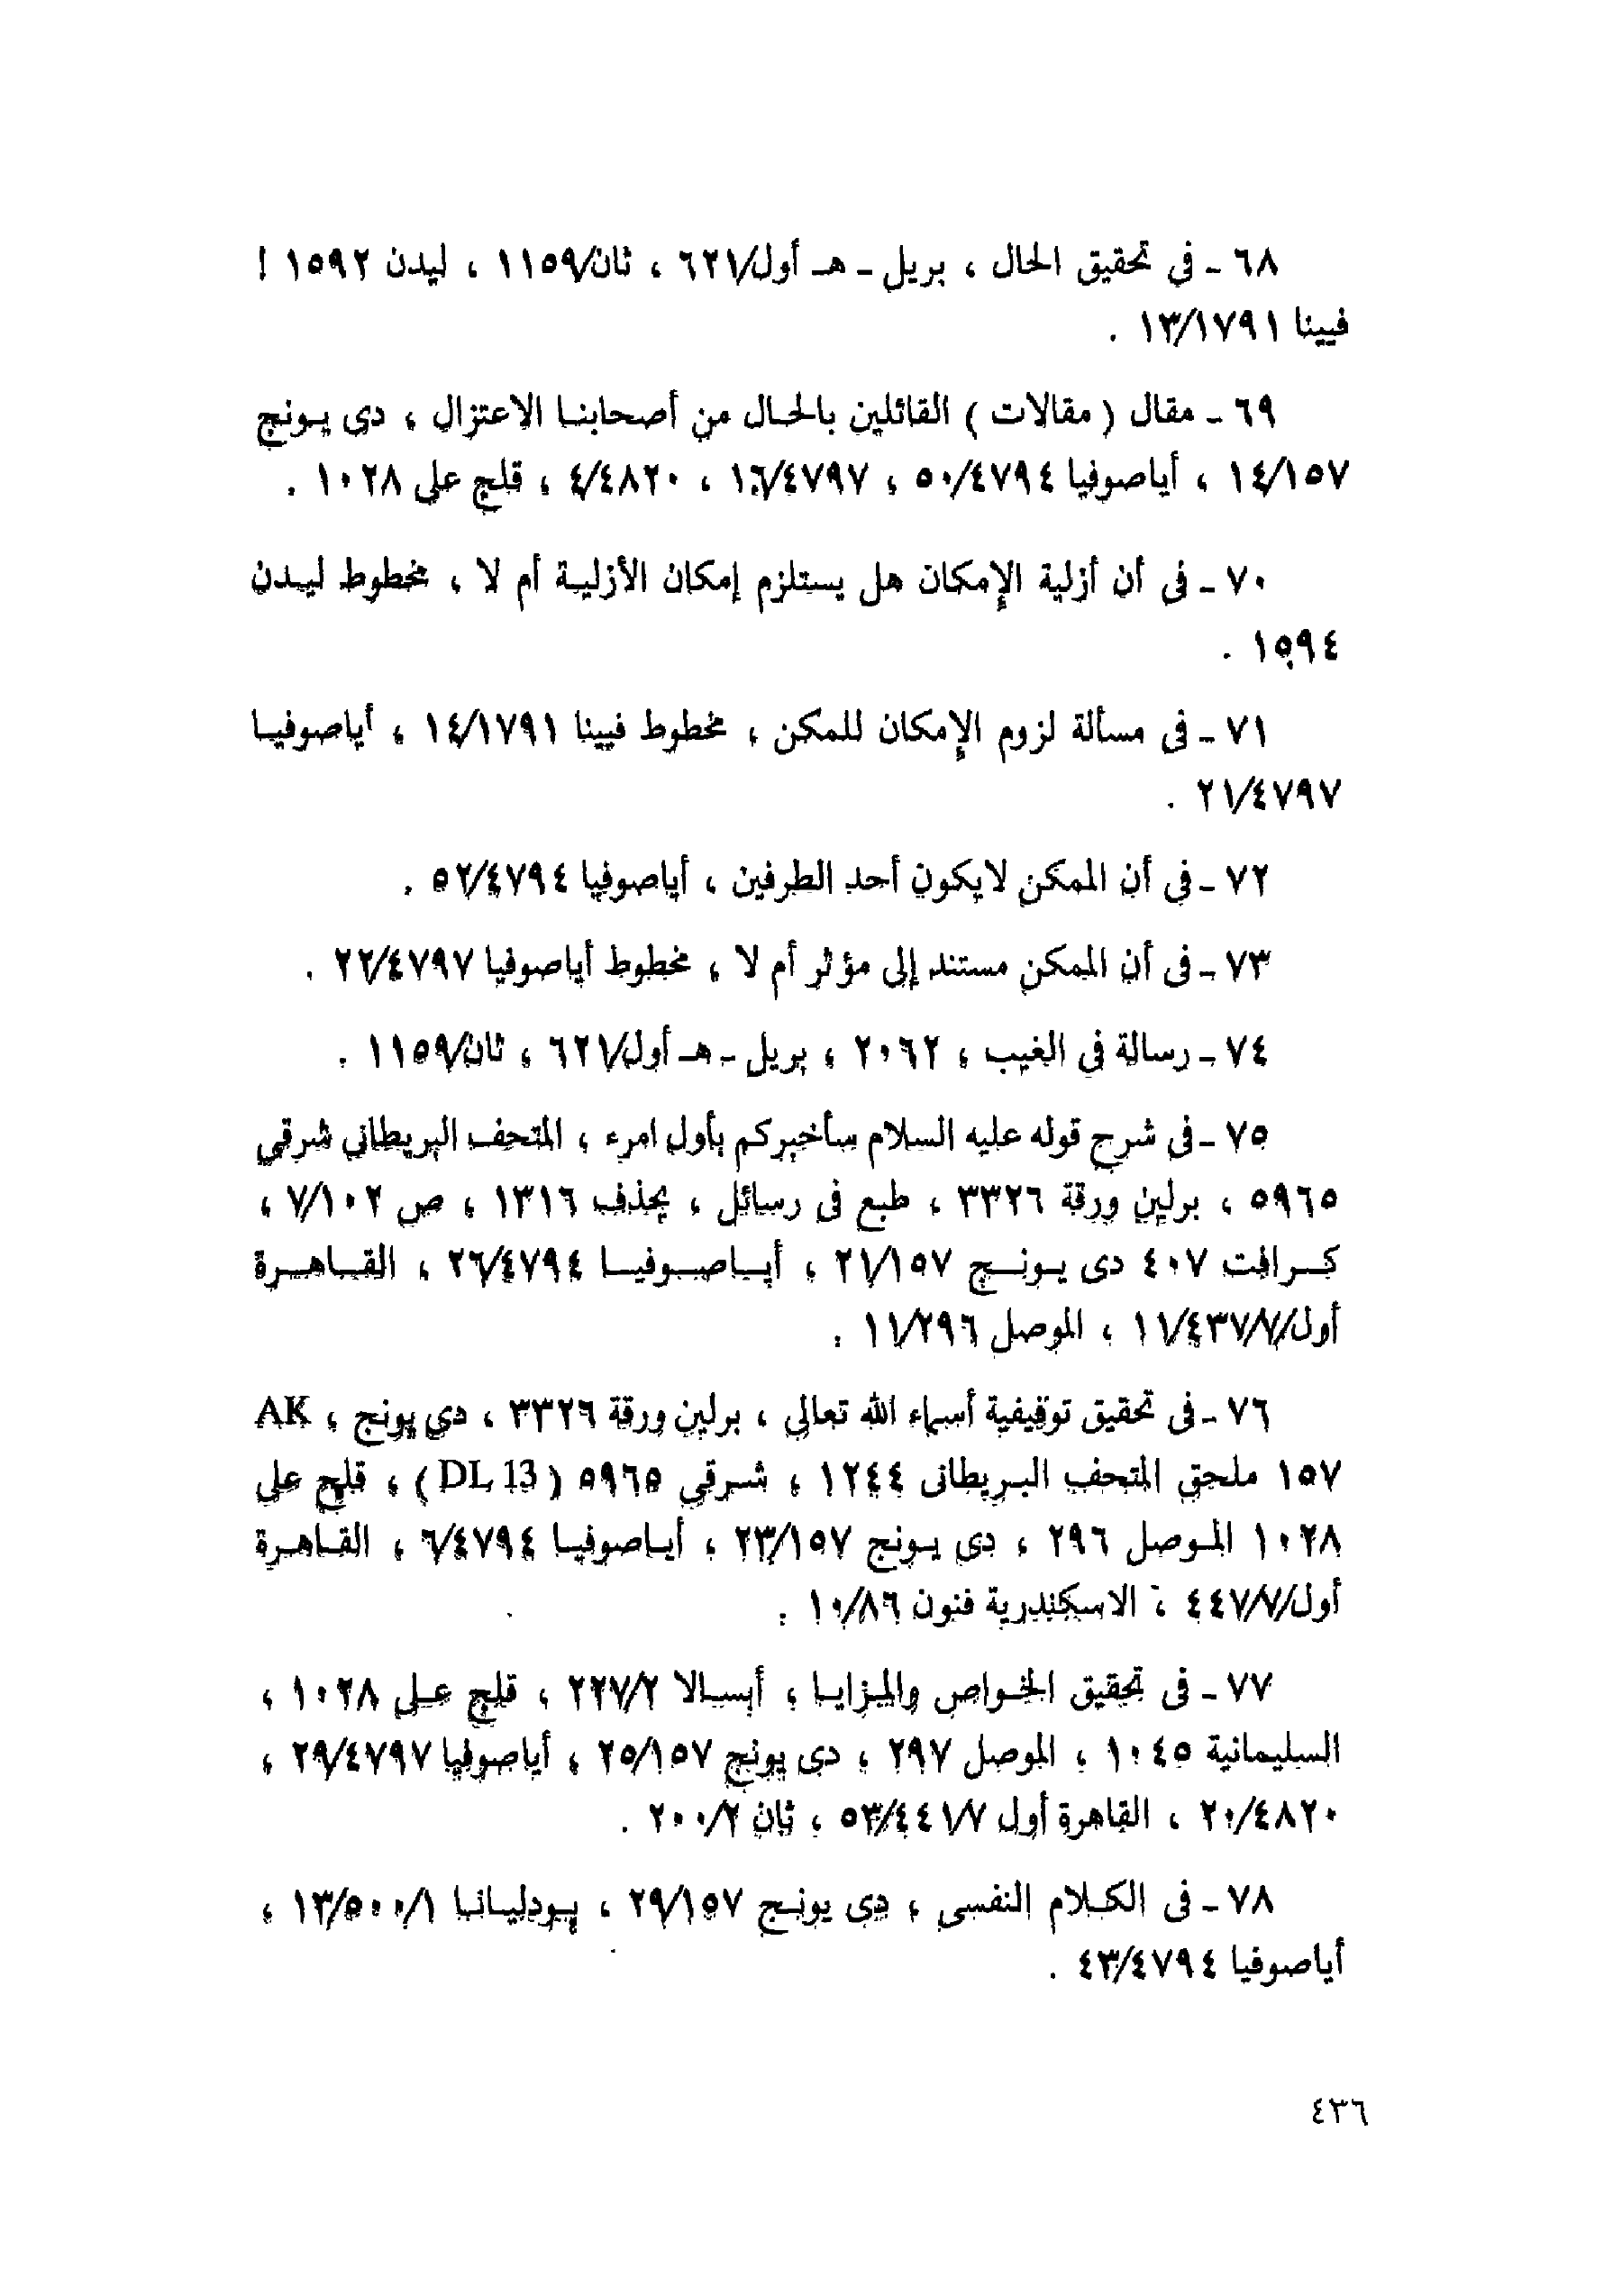 ٦٨ ـ فى تحقيق الحال ، بريل ـ هـ أول/٦٢١ ، ثان/١١٥٩ ، ليدن ١٥٩٢ !
فيينا ١٣/١٧٩١ .
٦٩ ـ مقال ( مقالات ) القائلين بالحال من أصحابنا الاعتزال ، دى يونج
١٤/١٥٧ ، أياصوفيا ٥٠/٤٧٩٤ ، ١٦/٤٧٩٧ ، ٤/٤٨٢٠ ، قلج على ١٠٢٨ .
٧٠ ـ فى أن أزلية الإمكان هل يستلزم إمكان الأزلية أم لا ، مخطوط ليدن
١٥٩٤ .
٧١ ـ فى مسألة لزوم الإمكان للمكن ، مخطوط فيينا ١٤/١٧٩١ ، أياصوفيا
٢١/٤٧٩٧ .
٧٢ ـ فى أن الممكن لايكون أحد الطرفين ، أياصوفيا ٥٢/٤٧٩٤ .
٧٣ ـ فى أن الممكن مستند إلى مؤثر أم لا ، مخطوط أياصوفيا ٢٢/٤٧٩٧ .
٧٤ ـ رسالة فى الغيب ، ٢٠٦٢ ، بريل ـ هـ أول/٦٢١ ، ثان/١١٥٩ .
٧٥ ـ فى شرح قوله عليه السلام سأخبركم بأول امرء ، المتحف البريطاني شرقي
٥٩٦٥ ، برلين ورقة ٣٣٢٦ ، طبع فى رسائل ، يحذف ١٣١٦ ، ص ٧/١٠٢ ،
كرافت ٤٠٧ دى يونج ٢١/١٥٧ ، أياصوفيا ٢٦/٤٧٩٤ ، القاهرة
أول/٧/١١/٤٣٧ ، الموصل ١١/٢٩٦ .
٧٦ ـ فى تحقيق توقيفية أسماء الله تعالى ، برلين ورقة ٣٣٢٦ ، دي يونج ، AK
١٥٧ ملحق المتحف البريطانى ١٢٤٤ ، شرقي ٥٩٦٥ ( DL 13 ) ، قلج على
١٠٢٨ الموصل ٢٩٦ ، دى يونج ٢٣/١٥٧ ، أياصوفيا ٦/٤٧٩٤ ، القاهرة
أول/٧/٤٤٧ ، الاسكندرية فنون ١٠/٨٦ .
٧٧ ـ فى تحقيق الخواص والمزايا ، أبسالا ٢٢٧/٢ ، قلج على ١٠٢٨ ،
السليمانية ١٠٤٥ ، الموصل ٢٩٧ ، دى يونج ٢٥/١٥٧ ، أياصوفيا ٢٩/٤٧٩٧ ،
٢٠/٤٨٢٠ ، القاهرة أول ٥٣/٤٤١/٧ ، ثان ٢٠٠/٢ .
٧٨ ـ فى الكلام النفسى ، دى يونج ٢٩/١٥٧ ، بودليانا ١٣/٥٠٠/١ ،
أياصوفيا ٤٣/٤٧٩٤ .
٤٣٦